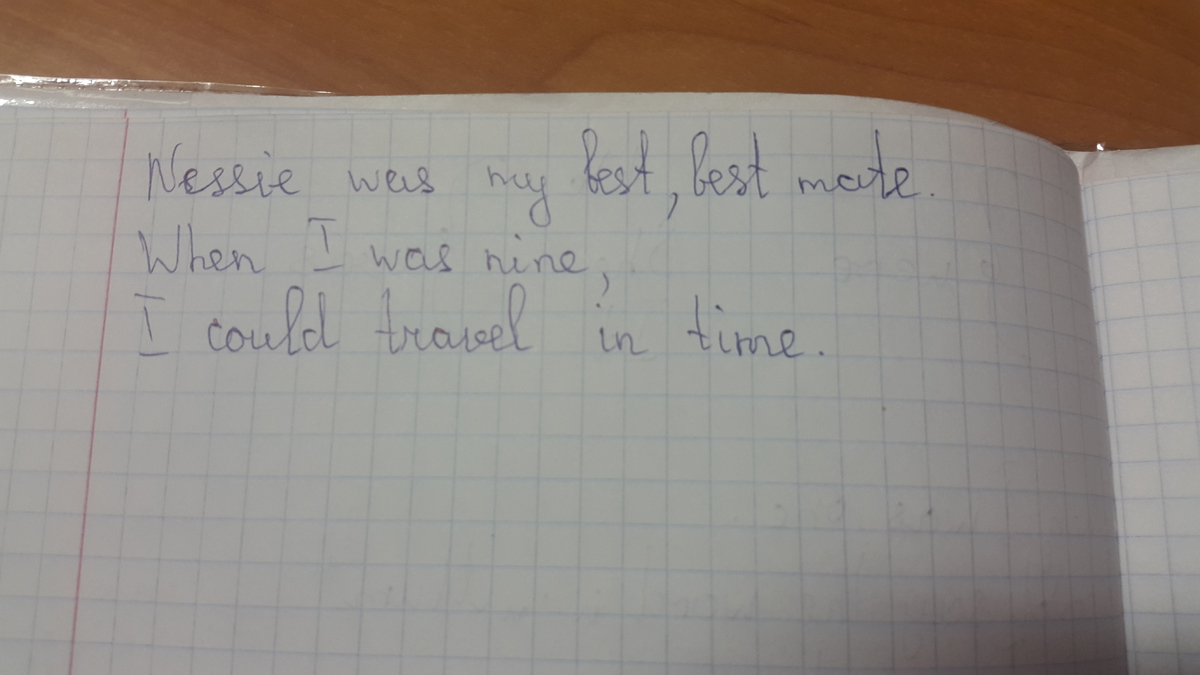 Nessie was my best, best mate.
When I was nine,
I could travel in time.